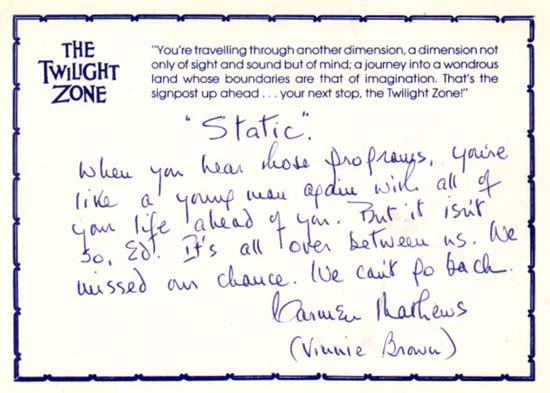 THE
TWILIGHT
ZONE
"You're travelling through another dimension, a dimension not
only of sight and sound but of mind; a journey into a wondrous
land whose boundaries are that of imagination. That's the
signpost up ahead . . . your next stop, the Twilight Zone!"
"Static".
When you hear those programs, you're
like a young man again with all of
your life ahead of you. But it isn't
so, Ed. It's all over between us. We
missed our chance. We can't go back.
Carmen Mathews
(Vinnie Brown)